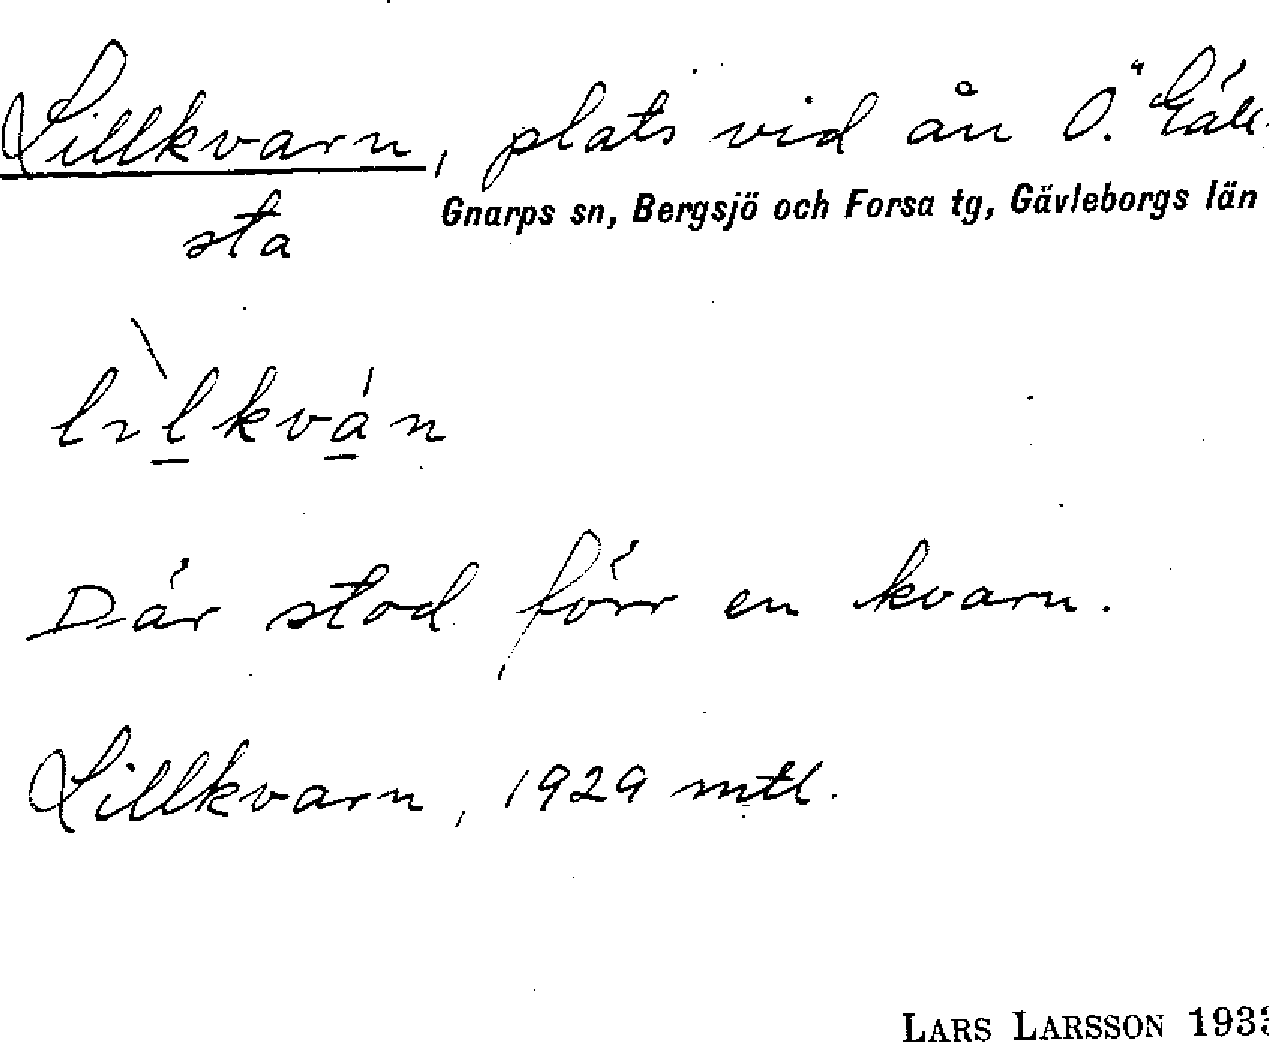 Lillkvarn, plats vid ån Ö. Gäll-
sta
Gnarps sn, Bergsjö och Forsa tg, Gävleborgs län
lılkván
Där stod förr en kvarn.
Lillkvarn, 1929 mtl.
LARS LARSSON 1933